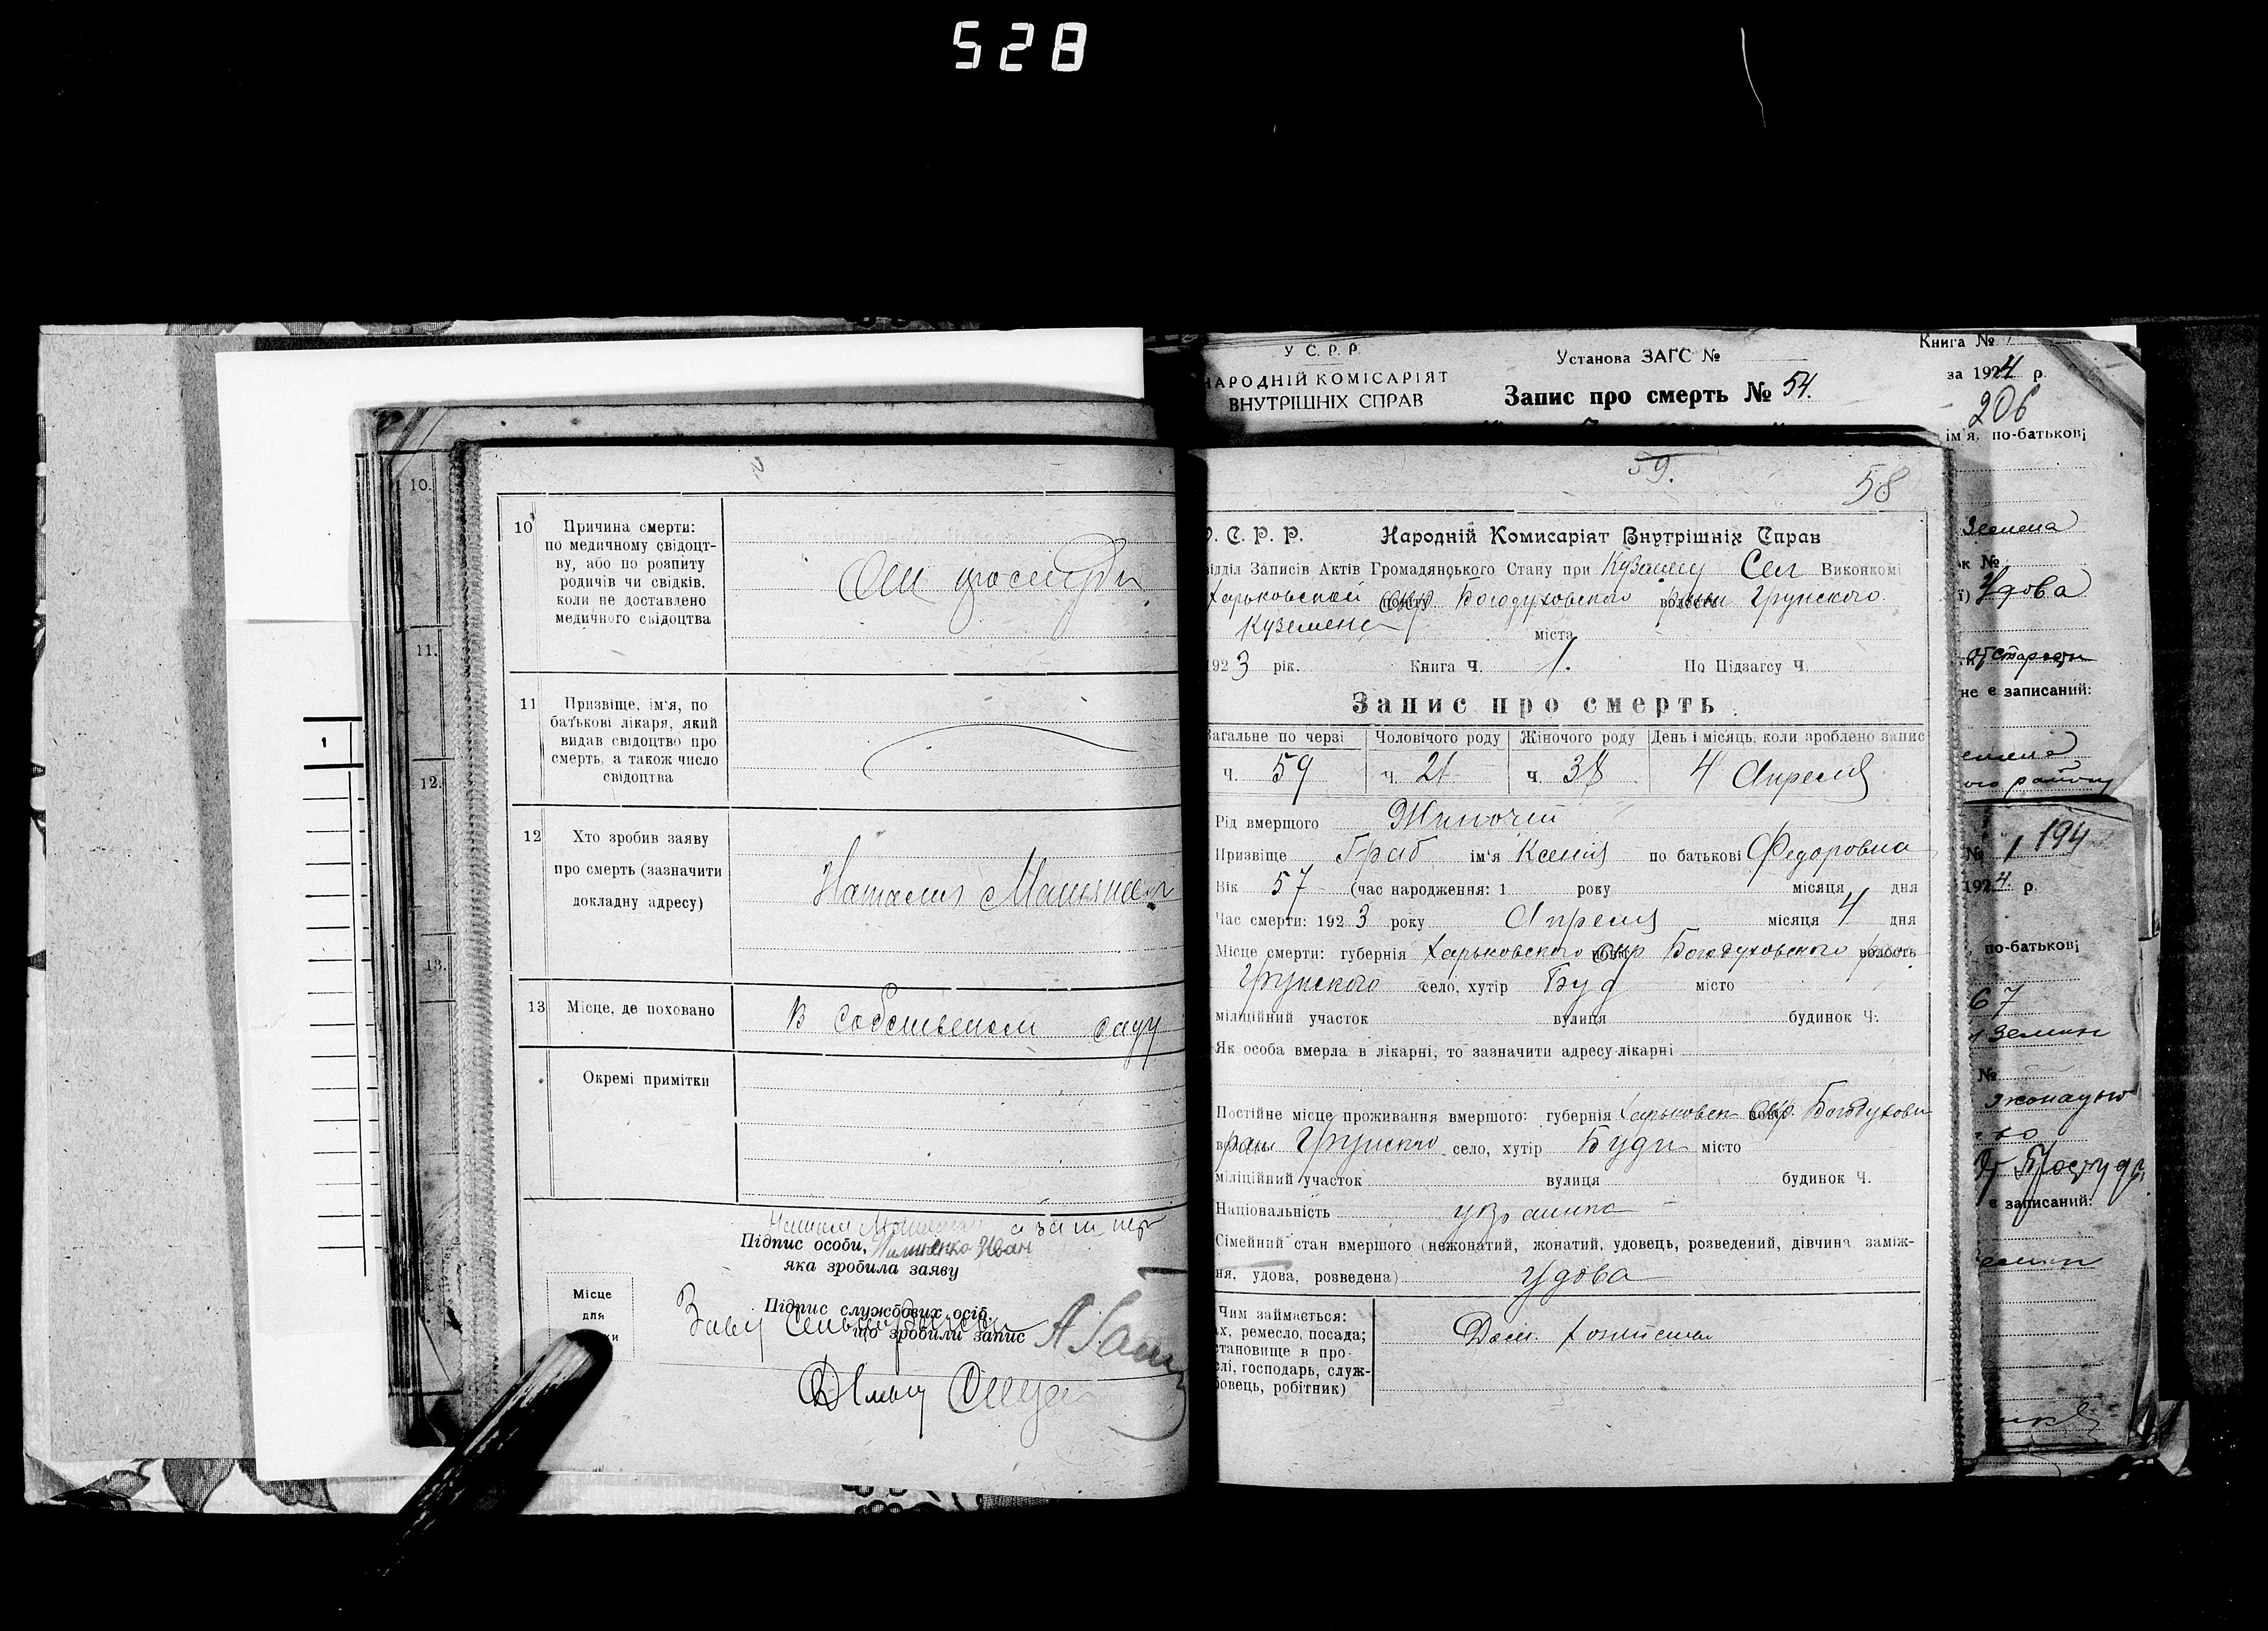 528
10.
11.
12.
13.
1
10 Причина смерти:
по медичному свідоцт-
ву, або по розпиту
родичів чи свідків,
коли не доставлено
медичного свідоцтва
От простуди
11 Призвіще, ім'я, по
батькові лікаря, який
видав свідоцтво про
смерть, а також число
свідоцтва
12 Хто зробив заяву
про смерть (зазначити
докладну адресу)
Наталия
13 Місце, де поховано
В собственом саду
Окремі примітки
Підпис особи,
яка зробила заяву
Иван
Місце
для
Підпис службових осіб,
що зробили запис
У С. Р. Р.
НАРОДНІЙ КОМІСАРІЯТ
ВНУТРІШНІХ СПРАВ
Установа ЗАГС №
Запис про смерть № 54.
Книга №
за 1924 р.
206
ім'я, по-батькові
59.
58
С. Р. Р. Народній Комисаріят Внутрішніх Справ
ідділ Записів Актів Громадянського Стану при Сел Виконкомі
Харьковской Окр Богодуховского волость Грунского
Куземенс
міста
1923 рік. Книга Ч. 1. По Підзагсу Ч.
Запис про смерть
Загальне по черзі Чоловічого роду Жіночого роду День і місяць, коли зроблено запис
Ч. 59 Ч. 21 Ч. 38 4 Апреля
Рід вмершого Жиночій
Призвіще Граб ім'я Ксения по батькові Федоровна
Вік 57 (час народження: 1 року місяця дня
Час смерти: 1923 року Апреля місяця 4 дня
Місце смерти: губернія Харьковского Окр Богодуховского волость
Грунского село, хутір Буд місто
міліційний участок вулиця будинок Ч.
Як особа вмерла в лікарні, то зазначити адресу лікарні
Постійне місце проживання вмершого: губернія Харьковск Окр. Богодухови
Грунского село, хутір Буди місто
міліційний участок вулиця будинок Ч.
Національність украинка
Сімейний стан вмершого (нежонатий, жонатий, удовець, розведений, дівчина заміж-
ня, удова, розведена) удова
Чим займається:
ах, ремесло, посада;
становище в про-
лі, господарь, служ-
бовець, робітник)
Дом. хозяйства
Земена
ж №
ї) Удова
От старости
не є записаний:
ого району
№ 1 194
1924. р.
по-батькові
67
№
От Простуди
є записаний: